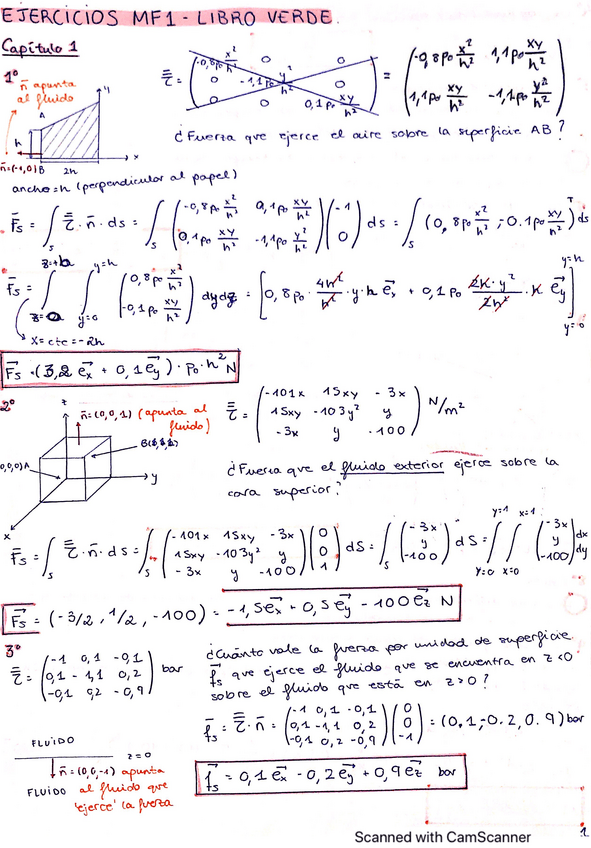 EJERCICIOS MF1 - LIBRO VERDE.
Capítulo 1
1º
n⃗ apunta al fluido
τ̿ = (-0,8p₀ x²/h² 0 0; 0 -1,1p₀ y²/h² 0; 0 0 0,1p₀ xy/h²) = (-0,8p₀ x²/h² 1,1p₀ xy/h²; 1,1p₀ xy/h² -1,1p₀ y²/h²)
A
y
h
n⃗=(-1,0) B
2h
x
¿Fuerza que ejerce el aire sobre la superficie AB?
ancho=h (perpendicular al papel)
F⃗s = ∫s τ̿ · n⃗ · ds = ∫s (-0,8p₀ x²/h² 0,1p₀ xy/h²; 0,1p₀ xy/h² -1,1p₀ y²/h²) (-1; 0) ds = ∫s (0,8p₀ x²/h² ; -0.1p₀ xy/h²)ᵀ ds
F⃗s = ∫ ∫ y=0 y=h (0,8p₀ x²/h²; -0,1p₀ xy/h²) dydz = [0,8p₀ · 4h²/h² · y · h e⃗x + 0,1p₀ 2h·y²/2h² · h e⃗y] y=0 y=h
x=cte=-2h
F⃗s = (3,2 e⃗x + 0,1 e⃗y) · p₀ · h² N
2º
z
n⃗=(0,0,1) (apunta al fluido)
τ̿ = (-101x 15xy -3x; 15xy -103y² y; -3x y -100) N/m²
B(1,1,1)
0,0,0)A
y
x
¿Fuerza que el fluido exterior ejerce sobre la
cara superior?
F⃗s = ∫s τ̿ · n⃗ · ds = ∫s (-101x 15xy -3x; 15xy -103y² y; -3x y -100) (0; 0; 1) dS = ∫s (-3x; y; -100) dS = ∫ y=0 y=1 ∫ x=0 x=1 (-3x; y; -100) dx dy
F⃗s = (-3/2, 1/2, -100) = -1,5e⃗x + 0,5e⃗y - 100e⃗z N
3º
τ̿ = (-1 0,1 -0,1; 0,1 -1,1 0,2; -0,1 0,2 -0,9) bar
¿Cuánto vale la fuerza por unidad de superficie
f⃗s que ejerce el fluido que se encuentra en z<0
sobre el fluido que está en z>0?
f⃗s = τ̿ · n⃗ = (-1 0,1 -0,1; 0,1 -1,1 0,2; -0,1 0,2 -0,9) (0; 0; -1) = (0,1;-0.2,0.9) bar
FLUIDO
z=0
n⃗=(0,0,-1) apunta
FLUIDO al fluido que
'ejerce' la fuerza
f⃗s = 0,1 e⃗x - 0,2 e⃗y + 0,9 e⃗z bar
1
Scanned with CamScanner